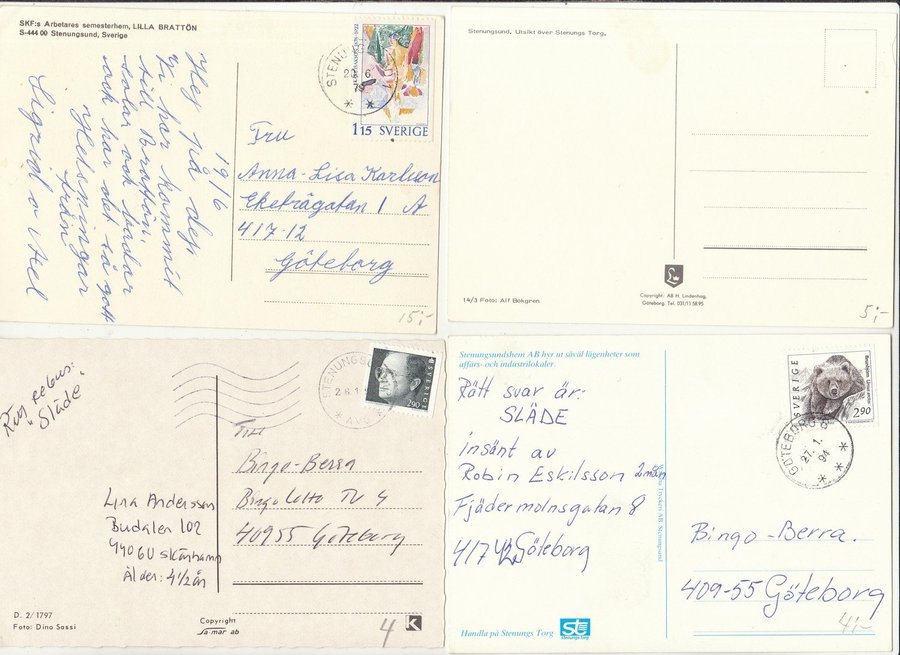 SKF:s Arbetares semesterhem, LILLA BRATTÖN
S-444 00 Stenungsund, Sverige
19/6
Hej på dej
Vi har kommit
till Brattön.
solar och badar
och har det så gott
Hälsningar
från
Sigrid o Axel
STENUNGSUND
6
79
1 15 SVERIGE
Fru
Anna-Lisa Karlsson
Eketrägatan 1 A
417-12
Göteborg
15;-
Stenungsund. Utsikt över Stenungs Torg.
14/3 Foto: Alf Bökgren
Copyright: AB H. Lindenhag,
Göteborg. Tel. 031/11 58 95
5;-
Rätt rebus:
"Släde"
STENUNGSUND
SVERIGE
2.90
Till
Bingo-Berra
BingoLotto TV 4
40955 Göteborg
Lina Andersson
Budalen 102
44060 Skärhamn
Ålder: 4 1/2 år
D. 2/1797
Foto: Dino Sassi
Copyright
sa-mar ab
4
K
Stenungsundshem AB hyr ut såväl lägenheter som
affärs- och industrilokaler.
Rätt svar är:
SLÄDE
insänt av
Robin Eskilsson 2 mån
Fjädermolnsgatan 8
417 42 Göteborg
SVERIGE
2.90
GÖTEBORG 8
27. 1.
94
Bingo-Berra.
409-55 Göteborg
4;-
Handla på Stenungs Torg
st
stenungs torg